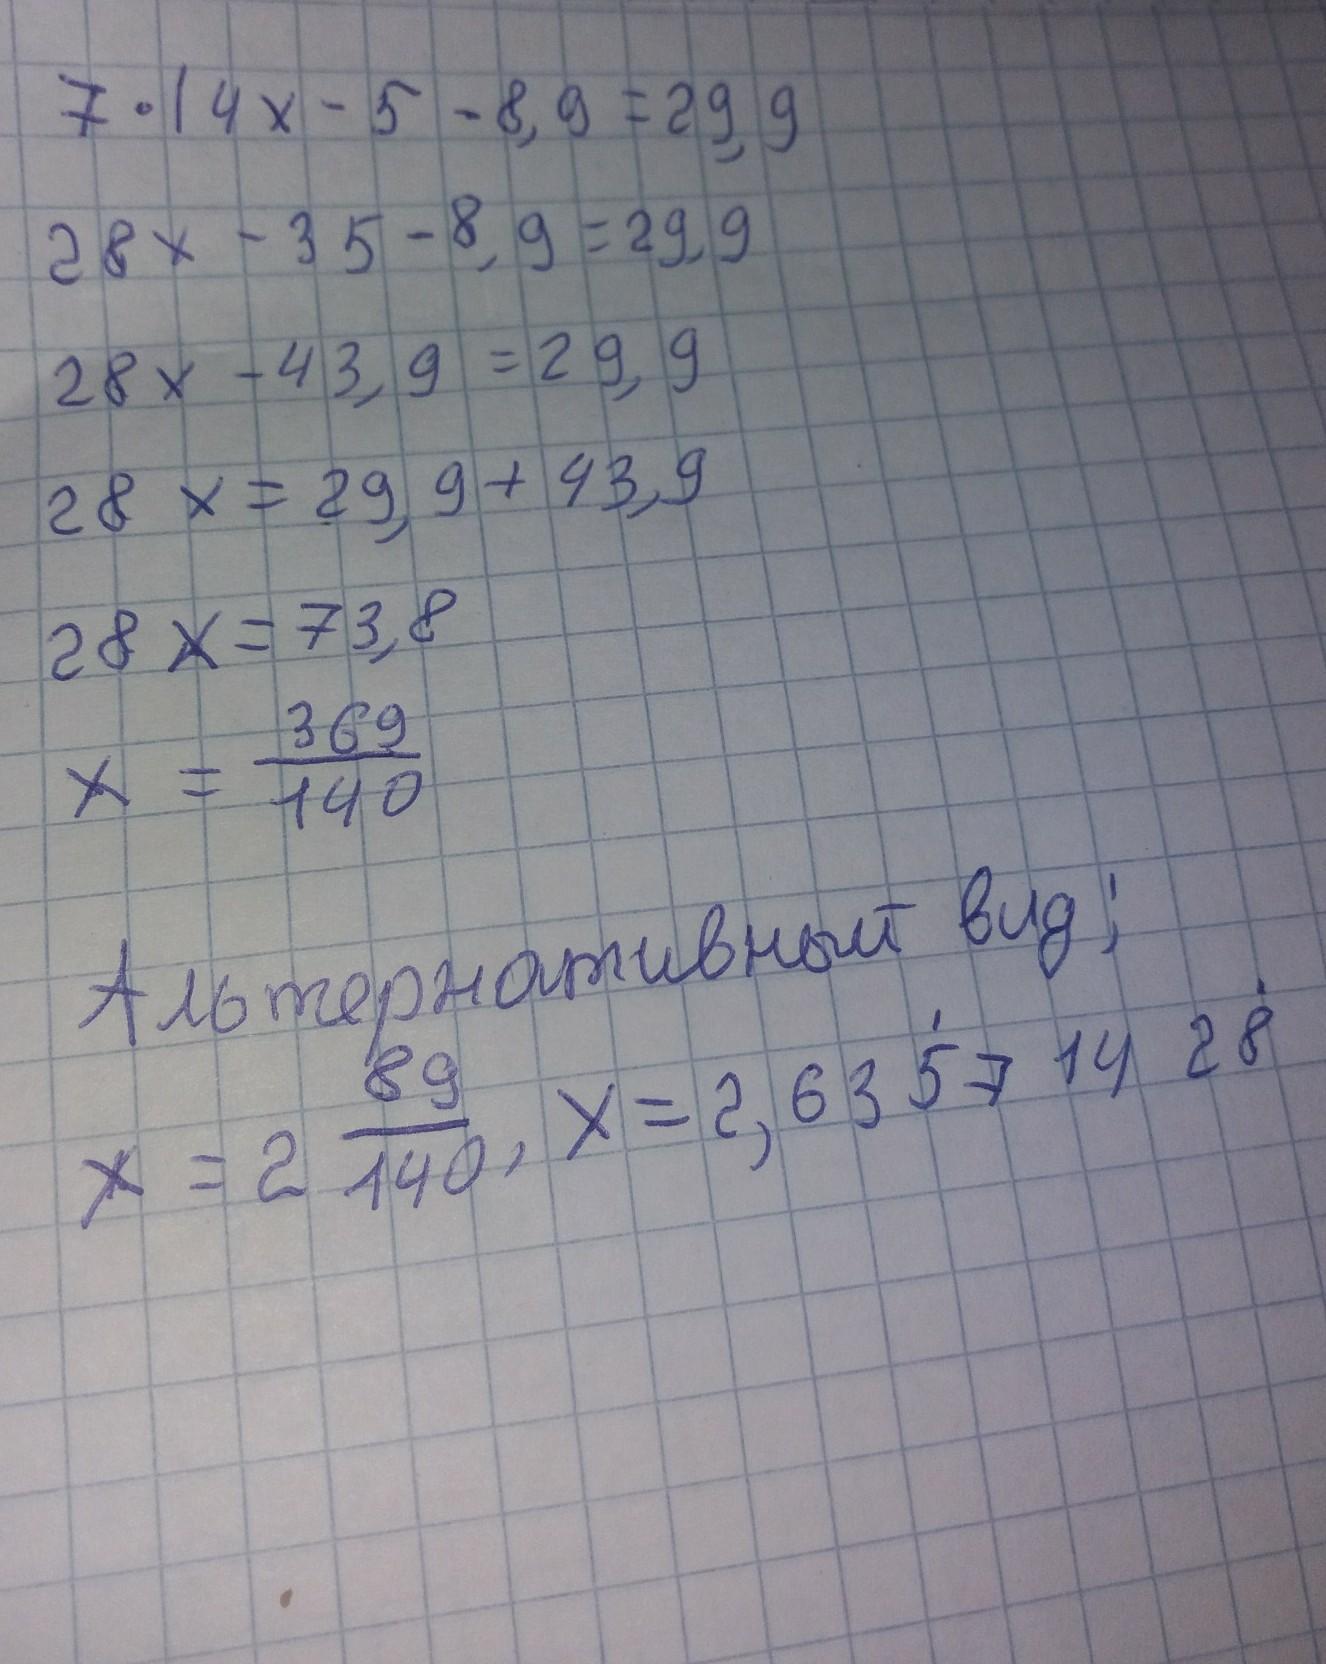 7·(4x-5-8,9=29,9
28x-35-8,9=29,9
28x-43,9=29,9
28x=29,9+43,9
28x=73,8
x=369/140
Альтернативный вид;
x=2 89/140, x=2,635714 28